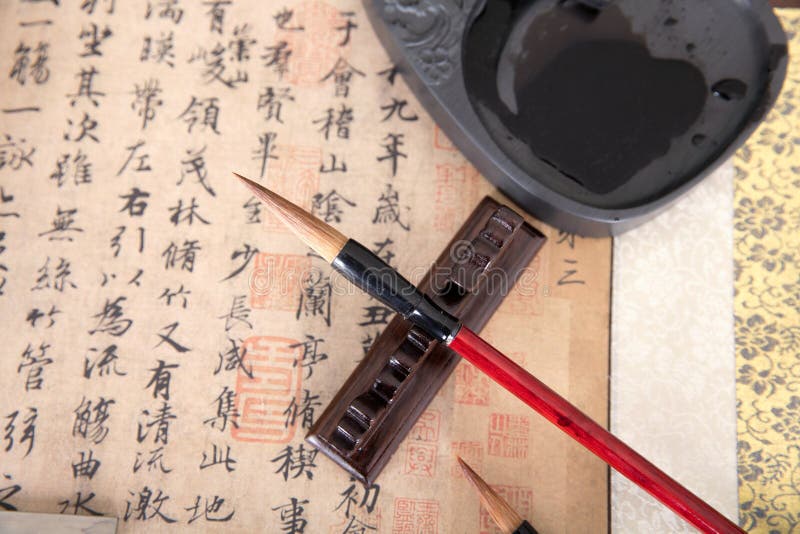 第三
九年歲在
丑
初會
于會稽山陰
蘭亭脩稧事
也羣賢畢至少長咸集此地
有崇山峻領茂林脩竹又有清流激
湍暎帶左右引以為流觴曲水
列坐其次雖無絲竹管弦之
一觴一詠
dreamstime